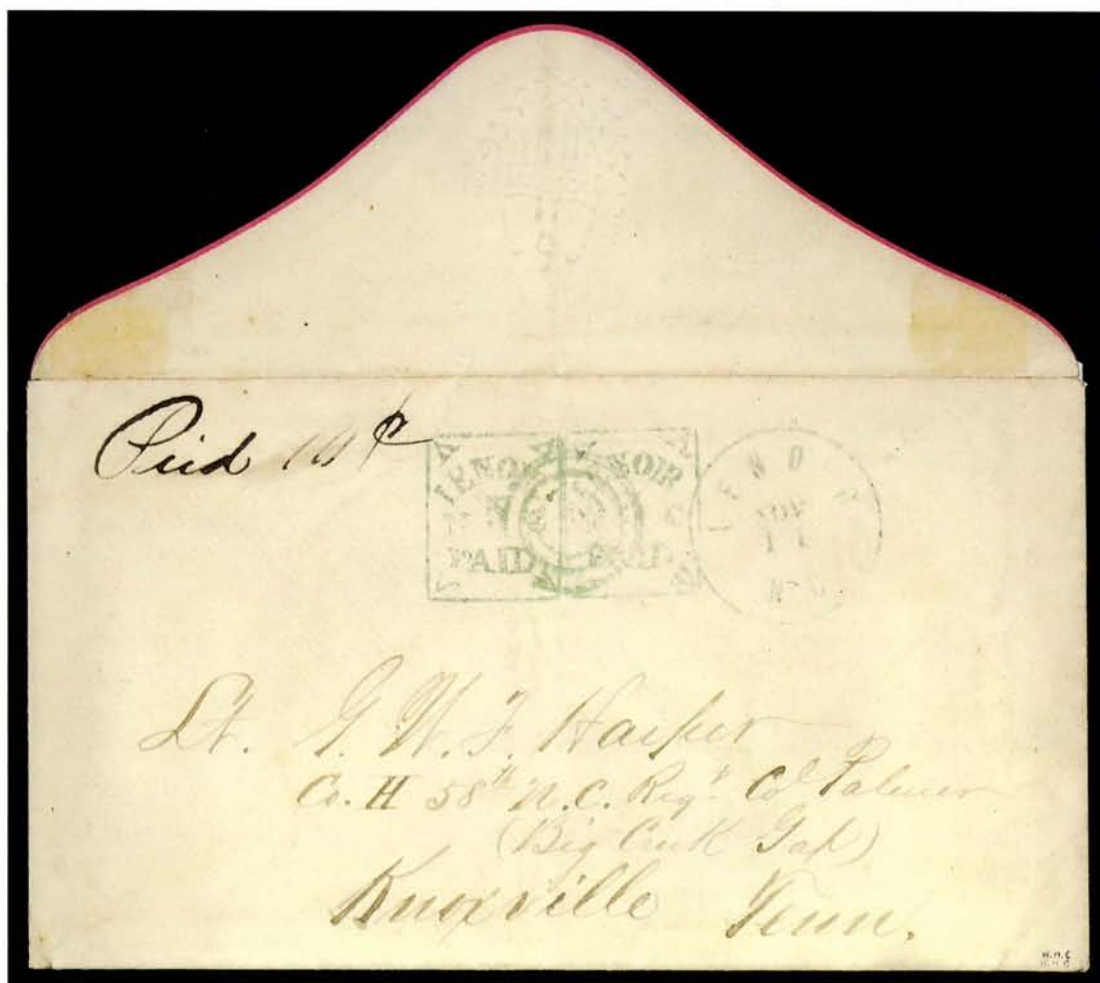 Paid 10¢
LENOIR
PAID
LENOIR
PAID
LENOIR
NOV
11
N.C.
Lt. G. W. F. Harper
Co. H 58th N.C. Reg't Col Palmer
(Big Creek Gap)
Knoxville Tenn.
W.H.C